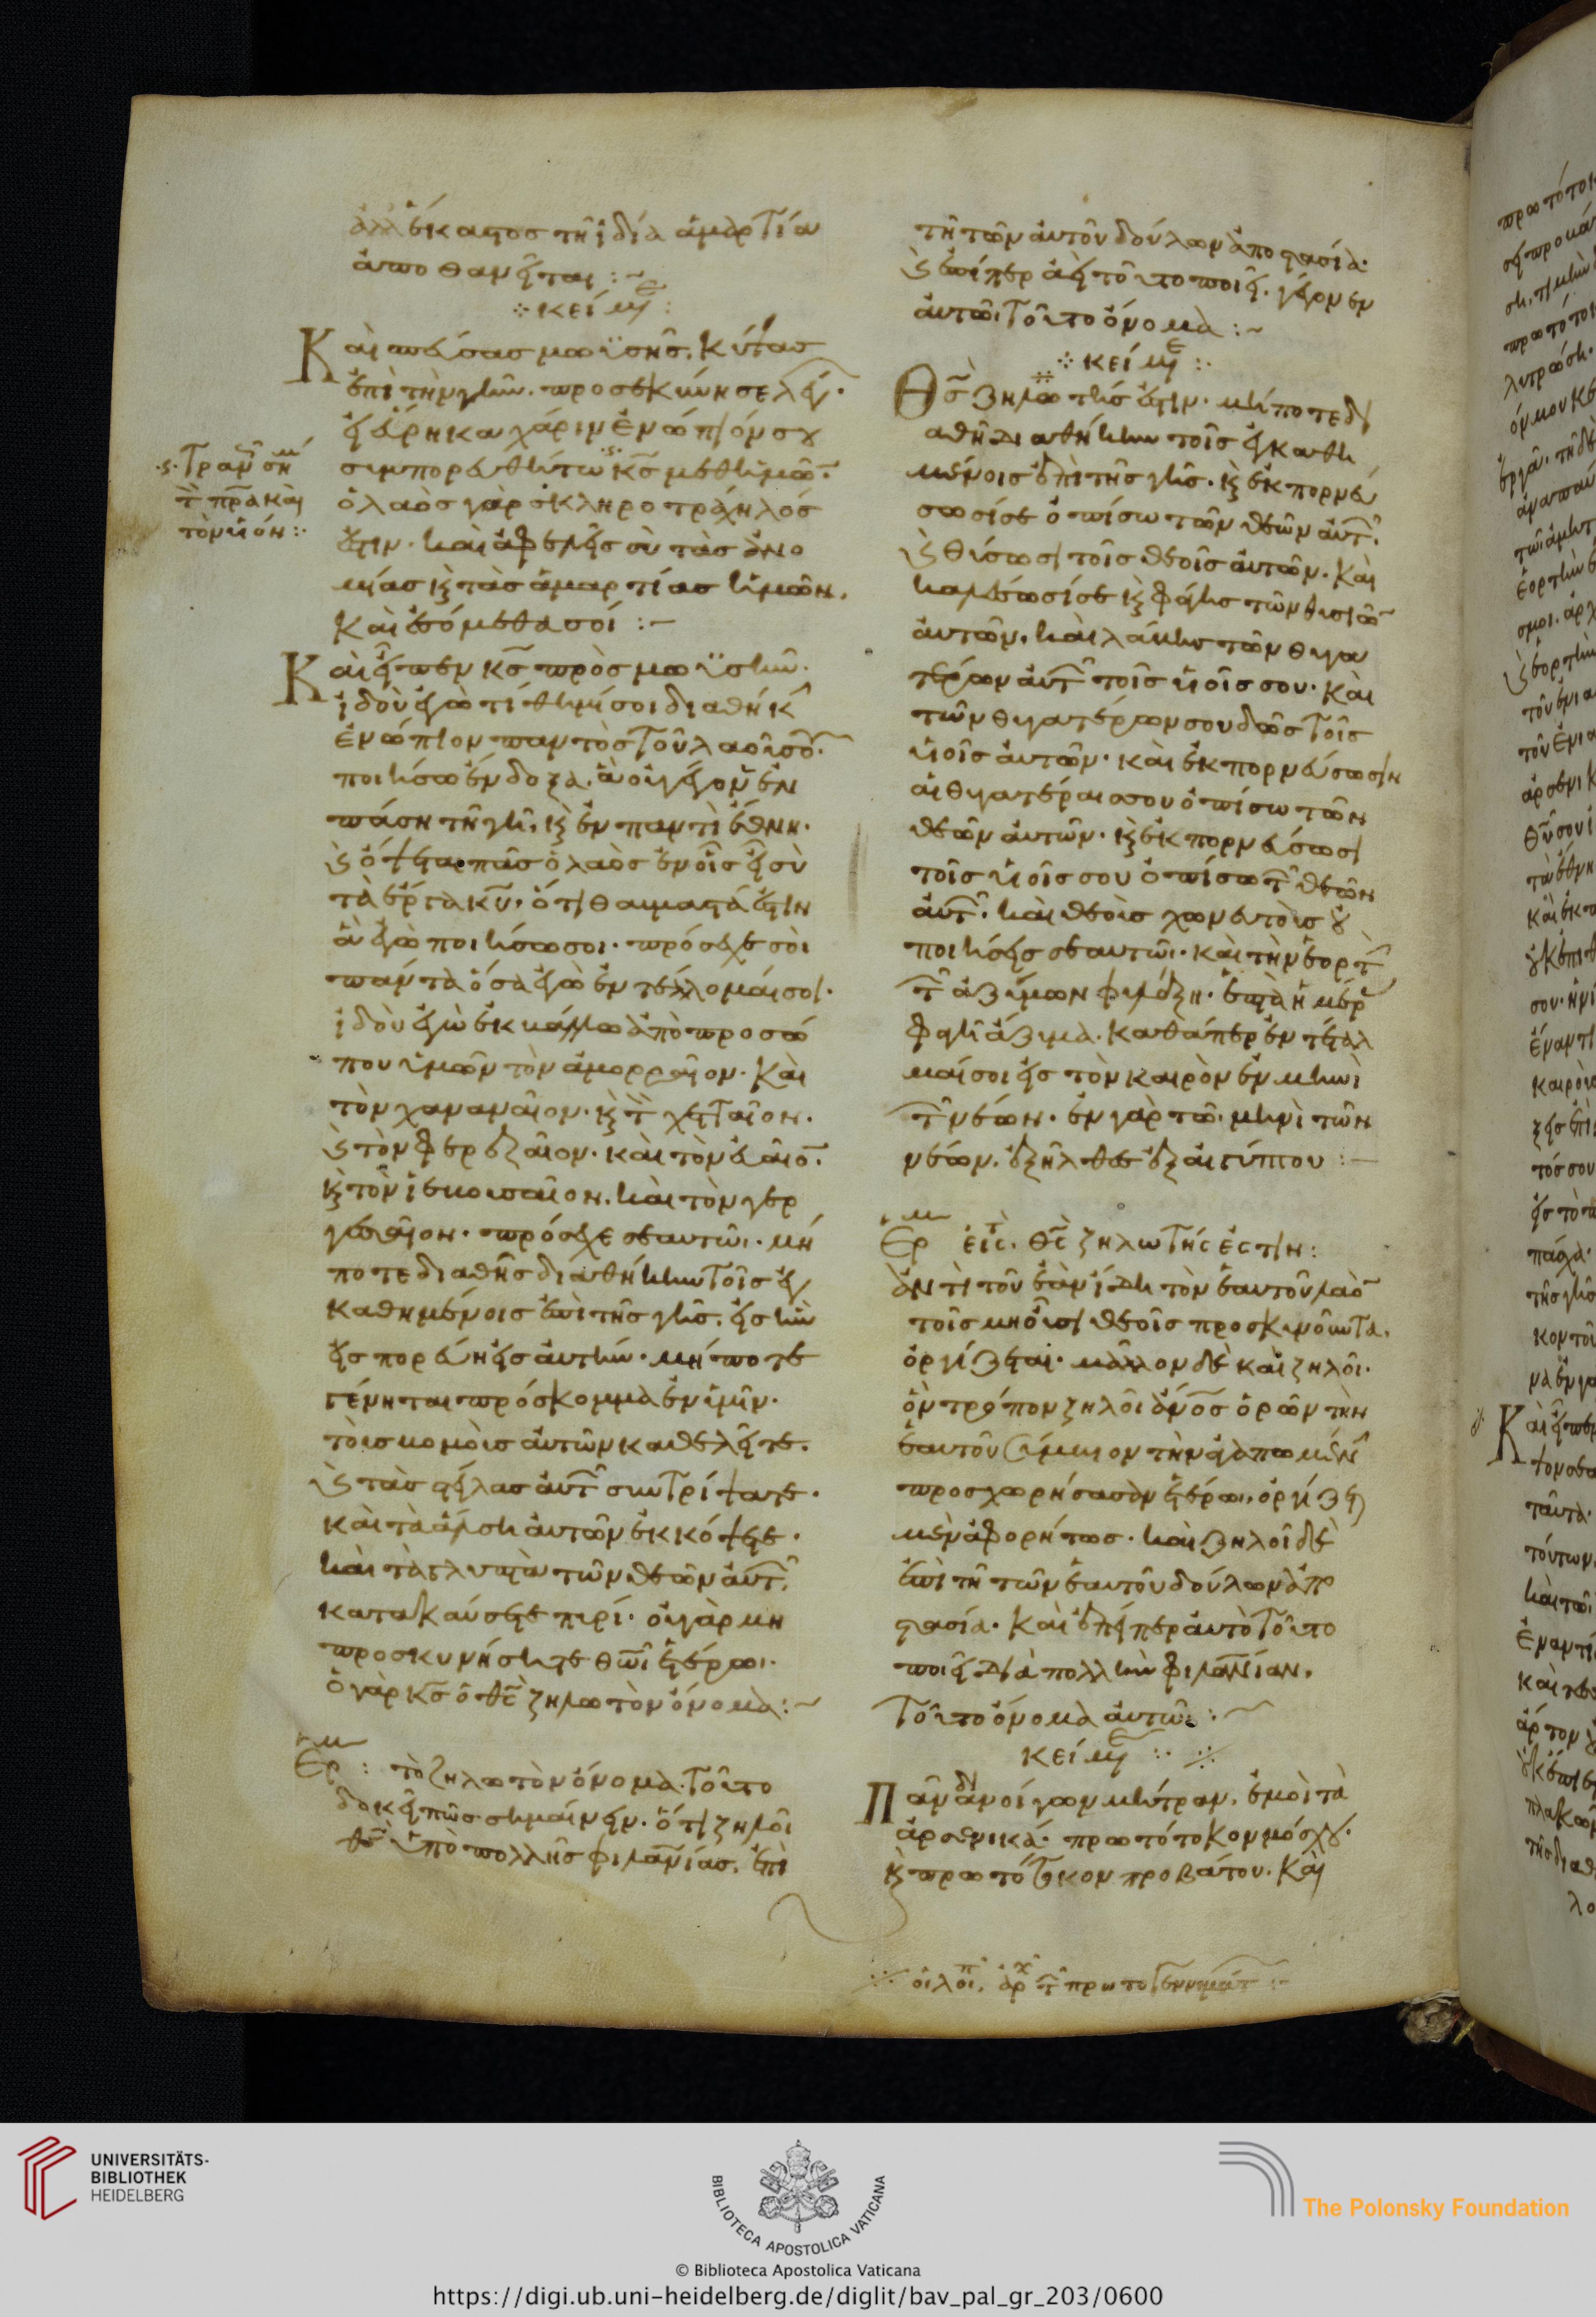 ἀλλ' ἕκαστος τῆ ἰδία ἁμαρτία
ἀποθανεῖται :~
κείμε :
Καὶ πεύσας μωϋσῆς, κύψας
ἐπὶ τὴν γῆν. προσεκύνησε λέγει·
εἰ εὕρηκα χάριν ἐνώπιόν σου
συμπορευθήτω κς μεθ' ἡμῶν·
ὁ λαὸς γὰρ σκληροτράχηλός
ἐστιν· καὶ ἀφελεῖς σὺ τὰς ἀνο
μίας κὶ τὰς ἁμαρτίας ἡμῶν.
καὶ ἐσόμεθα σοί :~
Καὶ εἶπεν κς πρὸς μωϋσῆν.
ἰδοὺ ἐγὼ τίθημί σοι διαθήκη
ἐνώπιον παντὸς τοῦ λαοῦ σου·
ποιήσω ἔνδοξα. ἃ οὐ γέγονεν ἐν
πάση τῆ γῆ, κὶ ἐν παντὶ ἔθνη·
κὶ ὄψεται πᾶς ὁ λαὸς ἐν οἷς εἶ σὺ
τὰ ἔργα κυ. ὅτι θαυμαστά ἐστιν
ἃ ἐγὼ ποιήσω σοι· πρόσεχε σὺ
πάντα ὅσα ἐγὼ ἐντέλλομαί σοι·
ἰδοὺ ἐγὼ ἐκβάλλω ἀπὸ προσώ
που ὑμῶν τὸν ἀμορραῖον· καὶ
τὸν χαναναῖον· κὶ τ χετταῖον.
κὶ τὸν φερεζαῖον· καὶ τὸν εὐαῖον·
κὶ τὸν ἰεβουσαῖον. καὶ τὸν γερ
γεσαῖον· πρόσεχε σεαυτῶ. μή
ποτε διαθῆς διαθήκην τοῖς ἐγ
καθημένοις ἐπὶ τῆς γῆς. εἰς ἣν
εἰσπορεύη εἰς αὐτήν· μήποτε
γένηται πρόσκομμα ἐν ὑμῖν·
τοὺς βωμοὺς αὐτῶν καθελεῖτε.
κὶ τὰς στήλας αὐτ συντρίψατε·
καὶ τὰ ἄλση αὐτῶν ἐκκόψετε·
καὶ τὰ γλυπτὰ τῶν θεῶν αὐτ.
κατακαύσετε πυρί· οὐ γὰρ μὴ
προσκυνήσητε θωῖ ἑτέρω·
ὁ γὰρ κς ὁ θς ζηλωτὸν ὄνομα :~
Ερμ : τὸ ζηλωτὸν ὄνομα τοῦτο
δοκεῖ πως σημαίνειν. ὅτι ζηλοῖ
θς ὑπὸ πολλῆς φιλανίας. ἐπὶ
·ς· τραν ση
τ πρα καὶ
τὸν υἱόν :·
τῆ τῶν αὐτοῦ δούλων ἀποστασία·
κὶ ἐπείπερ ἀεὶ τοῦτο ποιεῖ. γέγονεν
αὐτῶ τοῦτο ὄνομα :~
κείμε :·
Θς ζηλωτής ἐστιν· μήποτε δι
αθῆ διαθήκην τοῖς ἐγκαθη
μένοις ἐπὶ τῆς γῆς. κὶ ἐκπορνεύ
σωσίσε ὀπίσω τῶν θεῶν αὐτ.
κὶ θύσωσι τοῖς θεοῖς αὐτῶν· καὶ
καλέσωσίσε κὶ φάγης τῶν θυσιῶν
αὐτῶν. καὶ λάβης τῶν θυγα
τέρων αὐτ τοῖς υἱοῖς σου· καὶ
τῶν θυγατέρων σου δῶς τοῖς
υἱοῖς αὐτῶν· καὶ ἐκπορνεύσωσιν
αἱ θυγατέραι σου ὀπίσω τῶν
θεῶν αὐτῶν· κὶ ἐκπορνεύσωσι
τοῖς υἱοῖς σου ὀπίσω τ θεῶν
αὐτ. καὶ θεοὺς χωνευτοὺς οὐ
ποιήσεις σεαυτῶ· καὶ τὴν ἑορτ
τ ἀζύμων φυλάξη· ἑπτὰ ἡμέρ
φαγῆ ἄζυμα· καθάπερ ἐντέταλ
μαί σοι εἰς τὸν καιρὸν ἐν μηνὶ
τ νέων. ἐν γὰρ τῶ μηνὶ τῶν
νέων. ἐξῆλθες ἐξ αἰγύπτου :—
Ερμ εἰς τ. θς ζηλωτής ἐστιν :
ἀντὶ τοῦ ἐὰν ἴδη τὸν ἑαυτοῦ λαὸν
τοῖς μὴ οὖσι θεοῖς προσκυνοῦντα.
ὀργίζεται· μᾶλλον δὲ καὶ ζηλοῖ·
ὃν τρόπον ζηλοῖ ἀνος ὁρῶν τὴν
ἑαυτοῦ σύμβιον τὴν ἀγαπωμένη
προσχωρήσασαν ἑτέρω, ὀργίζετ
μὲν ἀφορήτως· καὶ ζηλοῖ δὲ
ἐπὶ τῆ τῶν ἑαυτοῦ δούλων ἀπο
στασία· καὶ ἐπείπερ αὐτὸ τοῦτο
ποιεῖ διὰ πολλὴν φιλανίαν.
τοῦτο ὄνομα αὐτῶ :~
κείμε :·
Πᾶν διανοίγων μήτραν. ἐμοὶ τὰ
ἀρσενικά· πρωτότοκον μόσχου·
κὶ πρωτότοκον προβάτου. καὶ
οἱ λοιπ. ἀρχ τ πρωτογεννημάτ :~
UNIVERSITÄTS-
BIBLIOTHEK
HEIDELBERG
BIBLIOTECA APOSTOLICA VATICANA
The Polonsky Foundation
© Biblioteca Apostolica Vaticana
https://digi.ub.uni-heidelberg.de/diglit/bav_pal_gr_203/0600